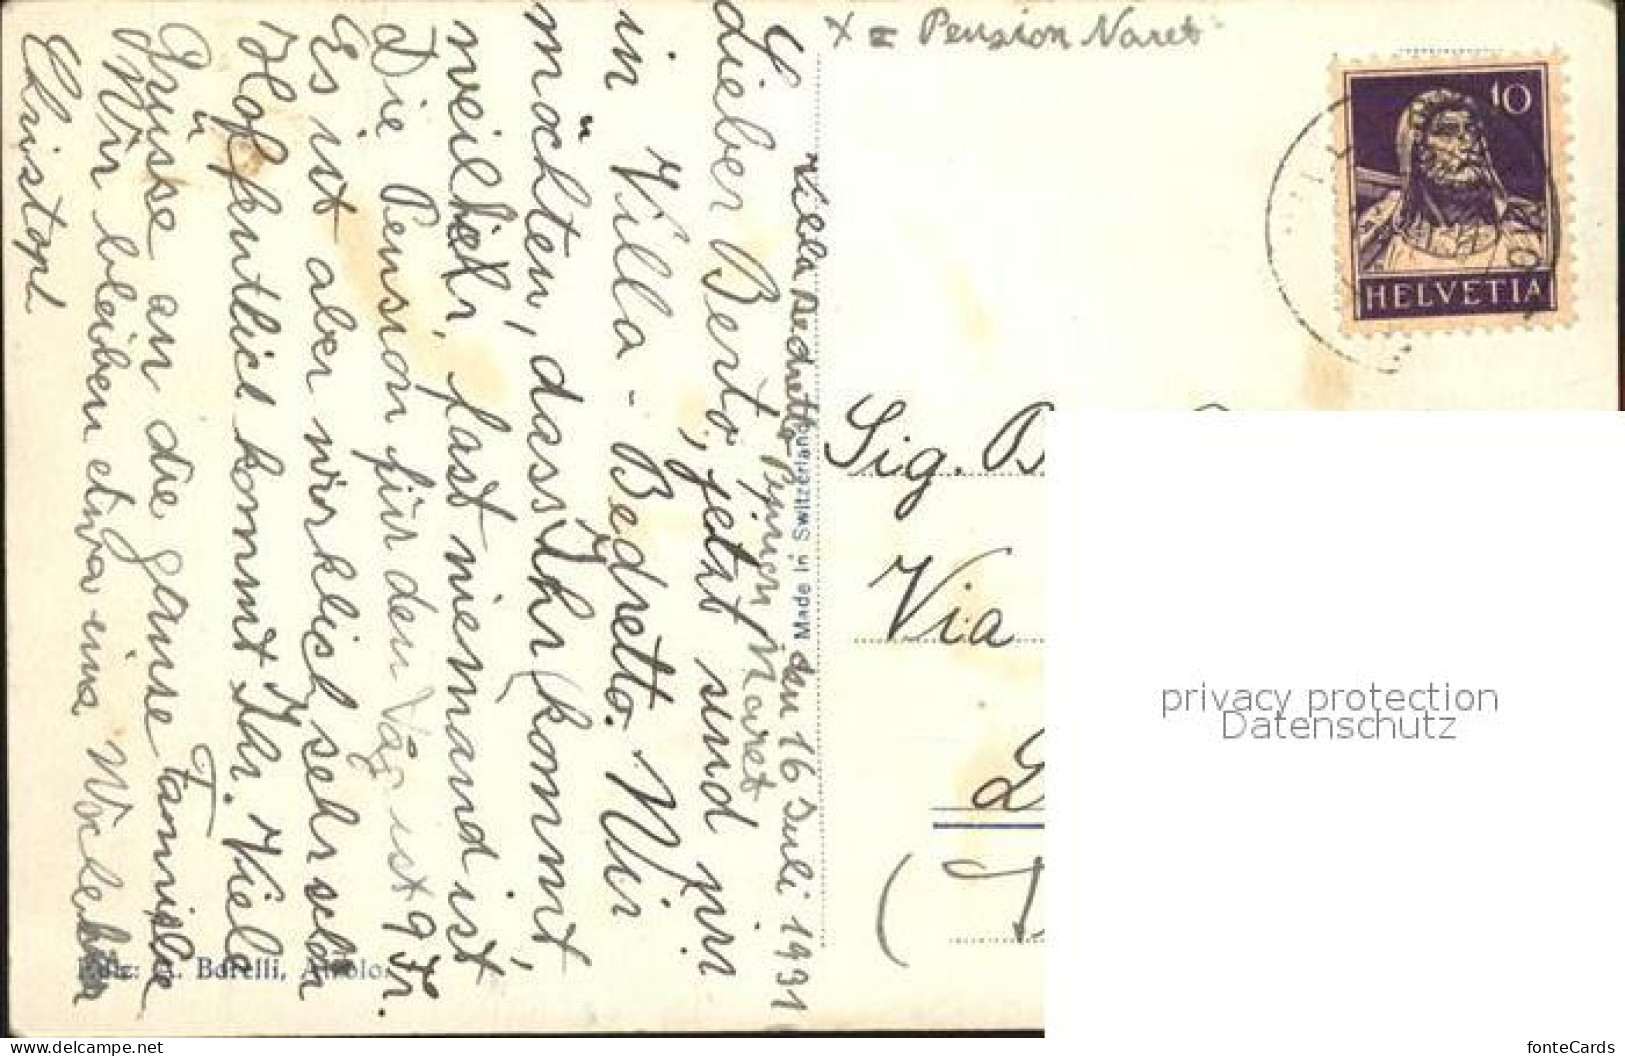 x = Pension Naret
Villa Bedretto den 16 Juli 1931
Pension Naret
Lieber Berto, jetzt sind wir
in Villa - Bedretto. Wir
möchten, dass Ihr kommt,
weil hier, fast niemand ist,
Die Pension für den Tag ist 9 Fr.
Es ist aber wirklich sehr schön
Hoffentlich kommt Ihr. Viele
Grüsse an die ganze Familie
Wir bleiben etwa eine Woche
Christoph
Made in Switzerland
Ediz: A. Borelli, Airolo.
10
HELVETIA
Sig. B
Via
privacy protection
Datenschutz
www.delcampe.net
fonteCards